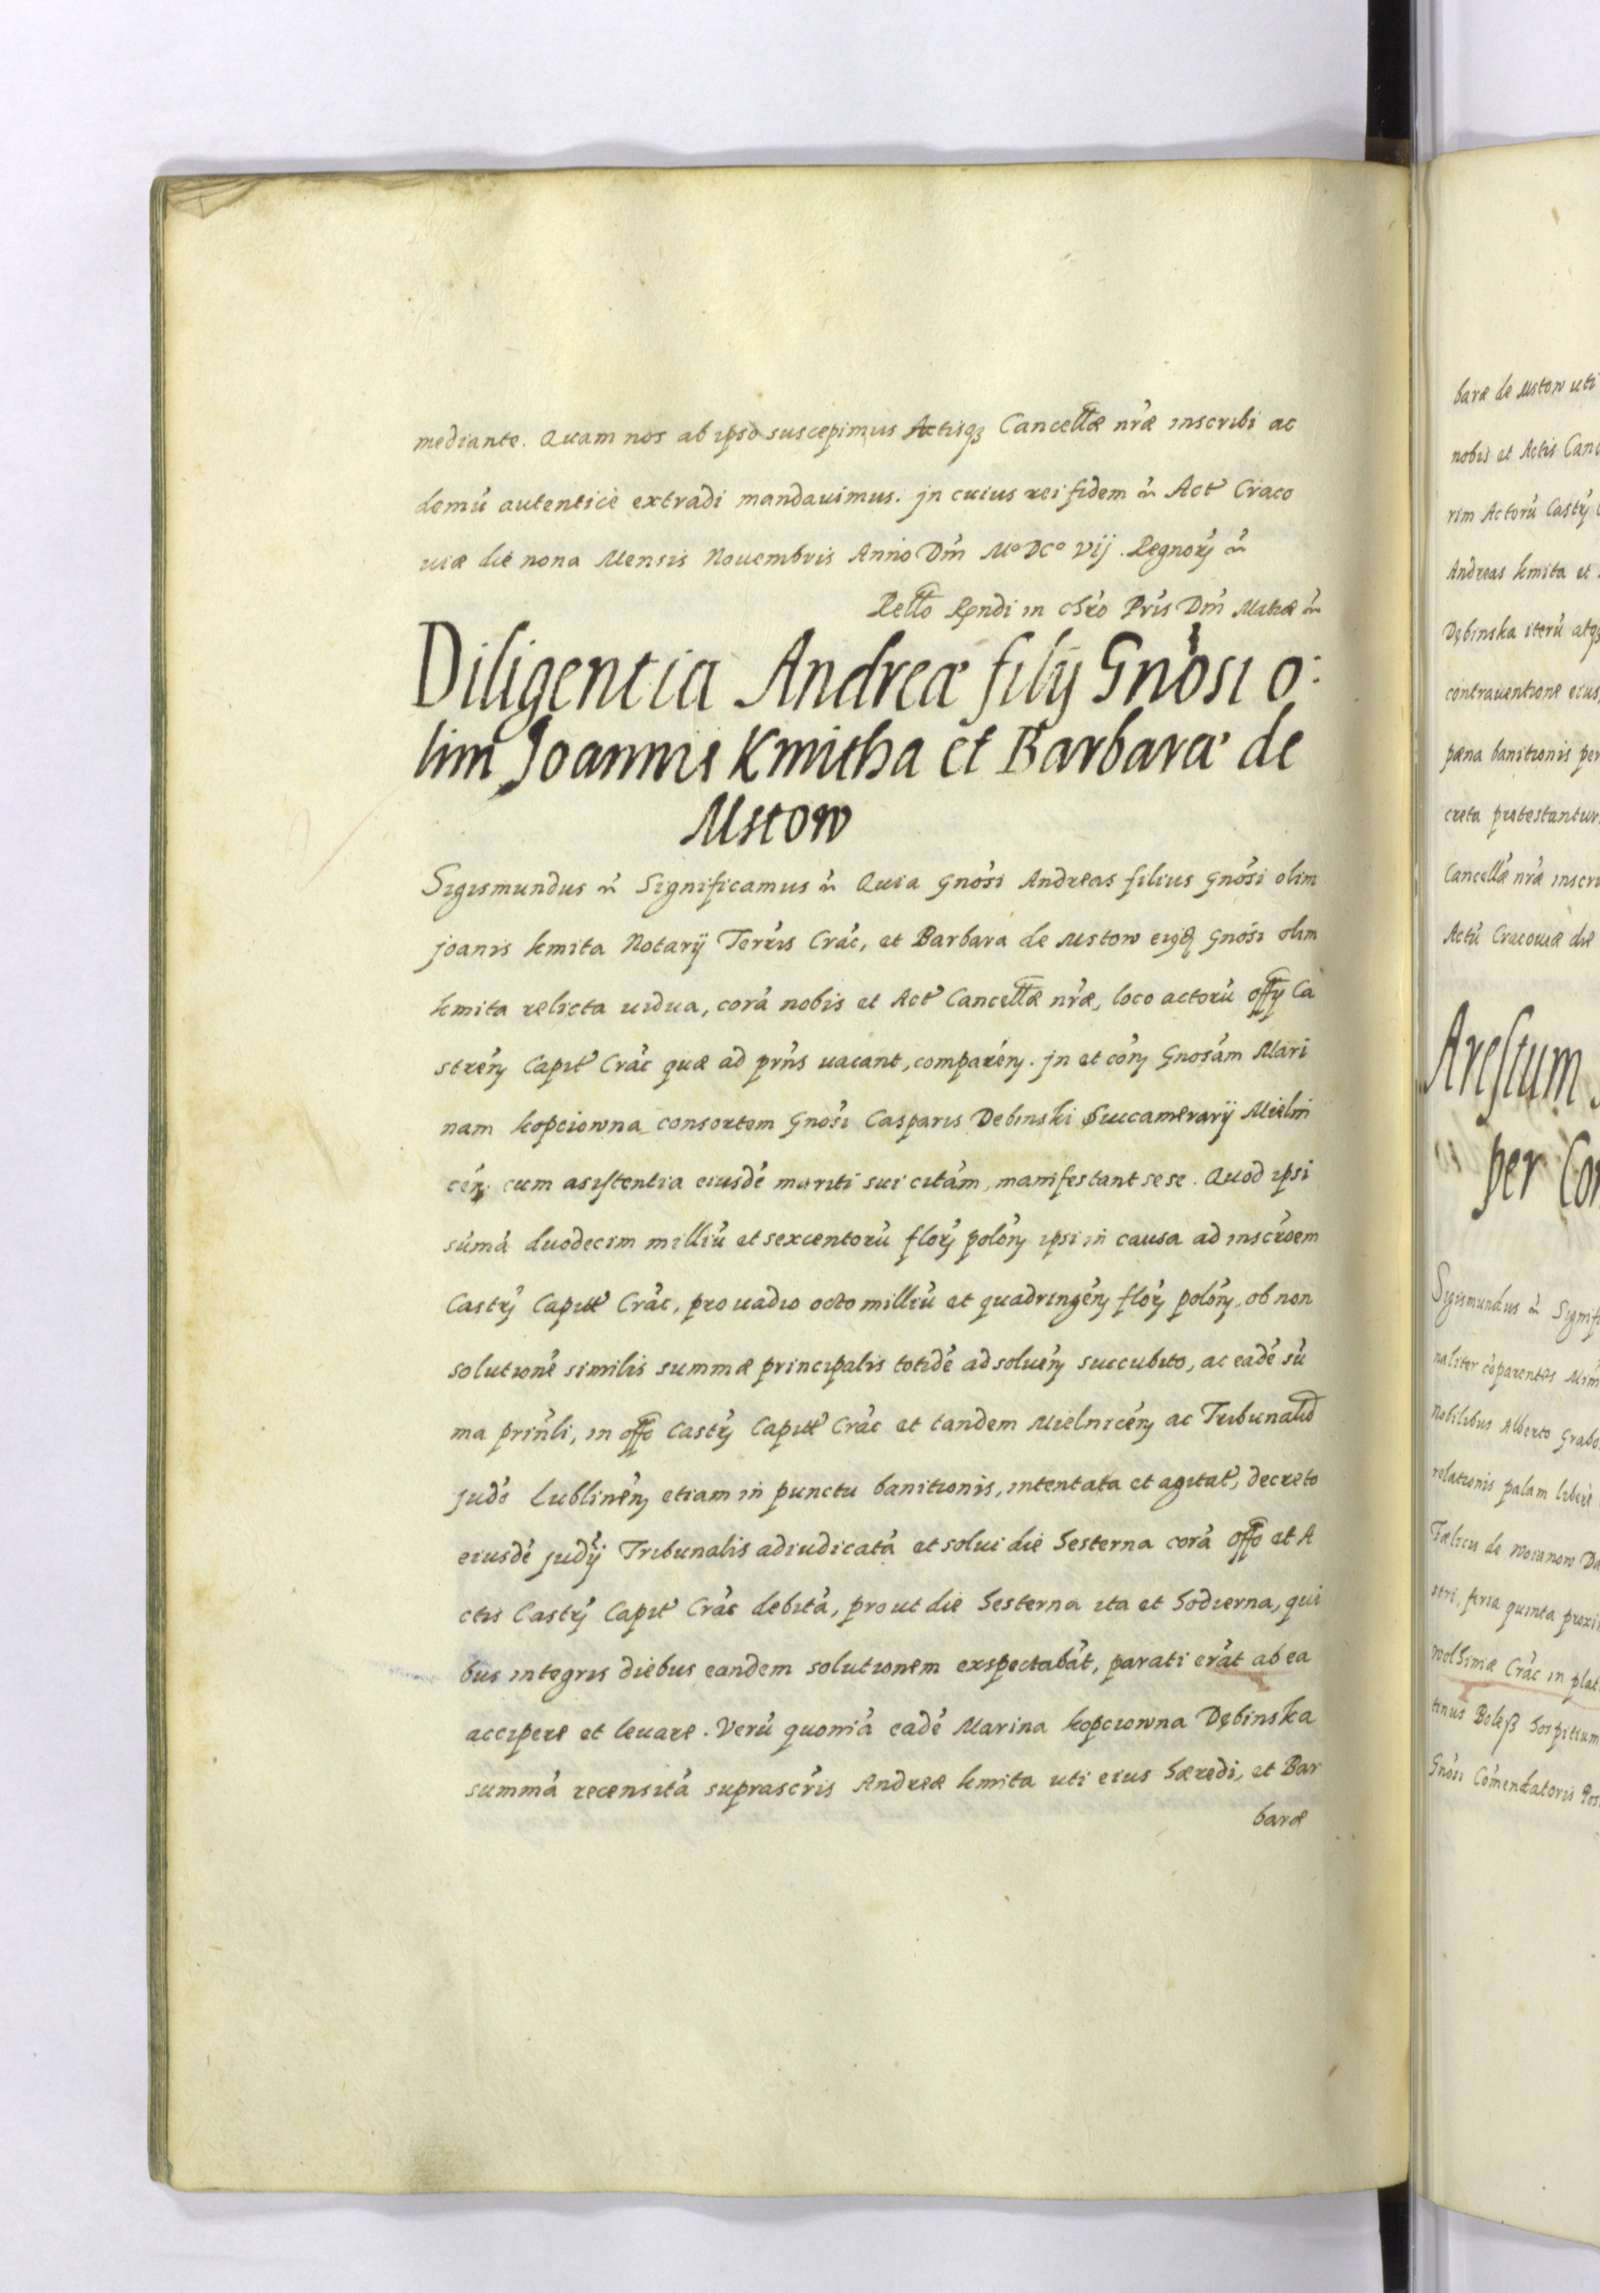 mediante. Quam nos ab ipso suscepimus Actisq3 Cancellæ nr̃æ inscribi ac
demũ autenticè extradi mandauimus. jn cuius rei fidem ꝛc̃ Act' Craco
uiæ die nona Mensis Nouembris Anno Dm̃ Mº DCº Vij. Regnorꝫ ꝛc̃
Rello Rndi in chr̃o Pris Dm̃ Mathiæ ꝛc̃
Diligentia Andreæ filij Gnõsi o:
lim Joannis Kmitha et Barbaræ de
Mstow
Sigismundus ꝛc̃ Significamus ꝛc̃ Quia Gnõsi Andreas filius Gnõsi olim
joanis kmita Notarij Terrĩs Crac̃, et Barbara de Mstow eiqd Gnõsi olim
kmita relicta uidua, corã nobis et Act' Cancellæ nr̃æ, loco actorũ offij Ca
strẽn Capit' Crac̃ quæ ad prñs uacant, comparẽn. jn et cõn Gnosãm Mari
nam kopciowna consortem Gnõsi Casparis Debinski Succamerarij Mielni
cẽn cum asistentia eiusdẽ mariti sui citãm, manifestant sese. Quod ipsi
sũmã duodecim milliũ et sexcentorũ florꝫ polõn ipsi in causa ad inscrõem
Castrꝫ Capitt' Crac̃, pro uadio octo milliũ et quadringẽn florꝫ polõn, ob non
solutionẽ similis summæ principalis totidẽ ad soluẽn succubito, ac eadẽ sũ
ma prinli, in offo Castrꝫ Capitt' Crac̃ et tandem Mielnicẽn ac Tribunalid
judõ Lublinẽn etiam in punctu banitionis, intentata et agitat', decreto
eiusdẽ judij Tribunalis adiudicatã et solui die hesterna corã offo et A
ctis Castrꝫ Capit' Crac̃ debitã, prout die hesterna ita et hodierna, qui
bus integris diebus eandem solutionem exspectabãt, parati erãt ab ea
accipere et leuare. Verũ quoniã eadẽ Marina kopciowna Dębinska
summã recensitã suprascrĩs Andreæ kmita uti eius hæredi, et Bar
baræ
baræ de Mstow uti
nobis et Actis Canc
rim Actorũ Castrꝫ
Andreas kmita et
Dębinska iterũ atq3
contrauentione eius,
pæna banitionis per
creta protestantur.
Cancellæ nr̃æ inscri
Actũ Cracouiæ die
Arestum
per Con
Sigismundus ꝛc̃ Signifi
naliter cõparentes Min
nobilibus Alberto Grabo
relationis palam liberè
Fælicis de Woianow Da
stri, feria quinta proxi
wolhiniæ Crac̃ in plat
tinus Boleß hospitium
Gnõsi Cõmendatoris Pos